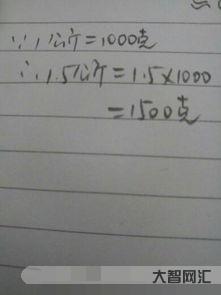 ∵1公斤=1000克
∴1.5公斤=1.5×1000
=1500克
大智网汇